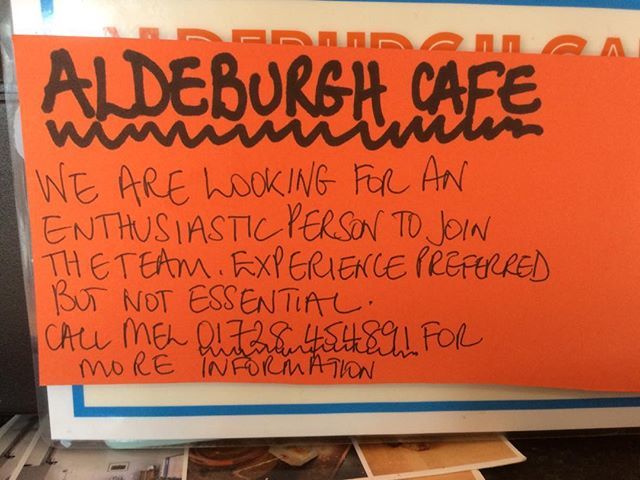 ALDEBURGH CAFE
WE ARE LOOKING FOR AN
ENTHUSIASTIC PERSON TO JOIN
THE TEAM. EXPERIENCE PREFERRED
BUT NOT ESSENTIAL.
CALL MEL 01728 454891 FOR
MORE INFORMATION